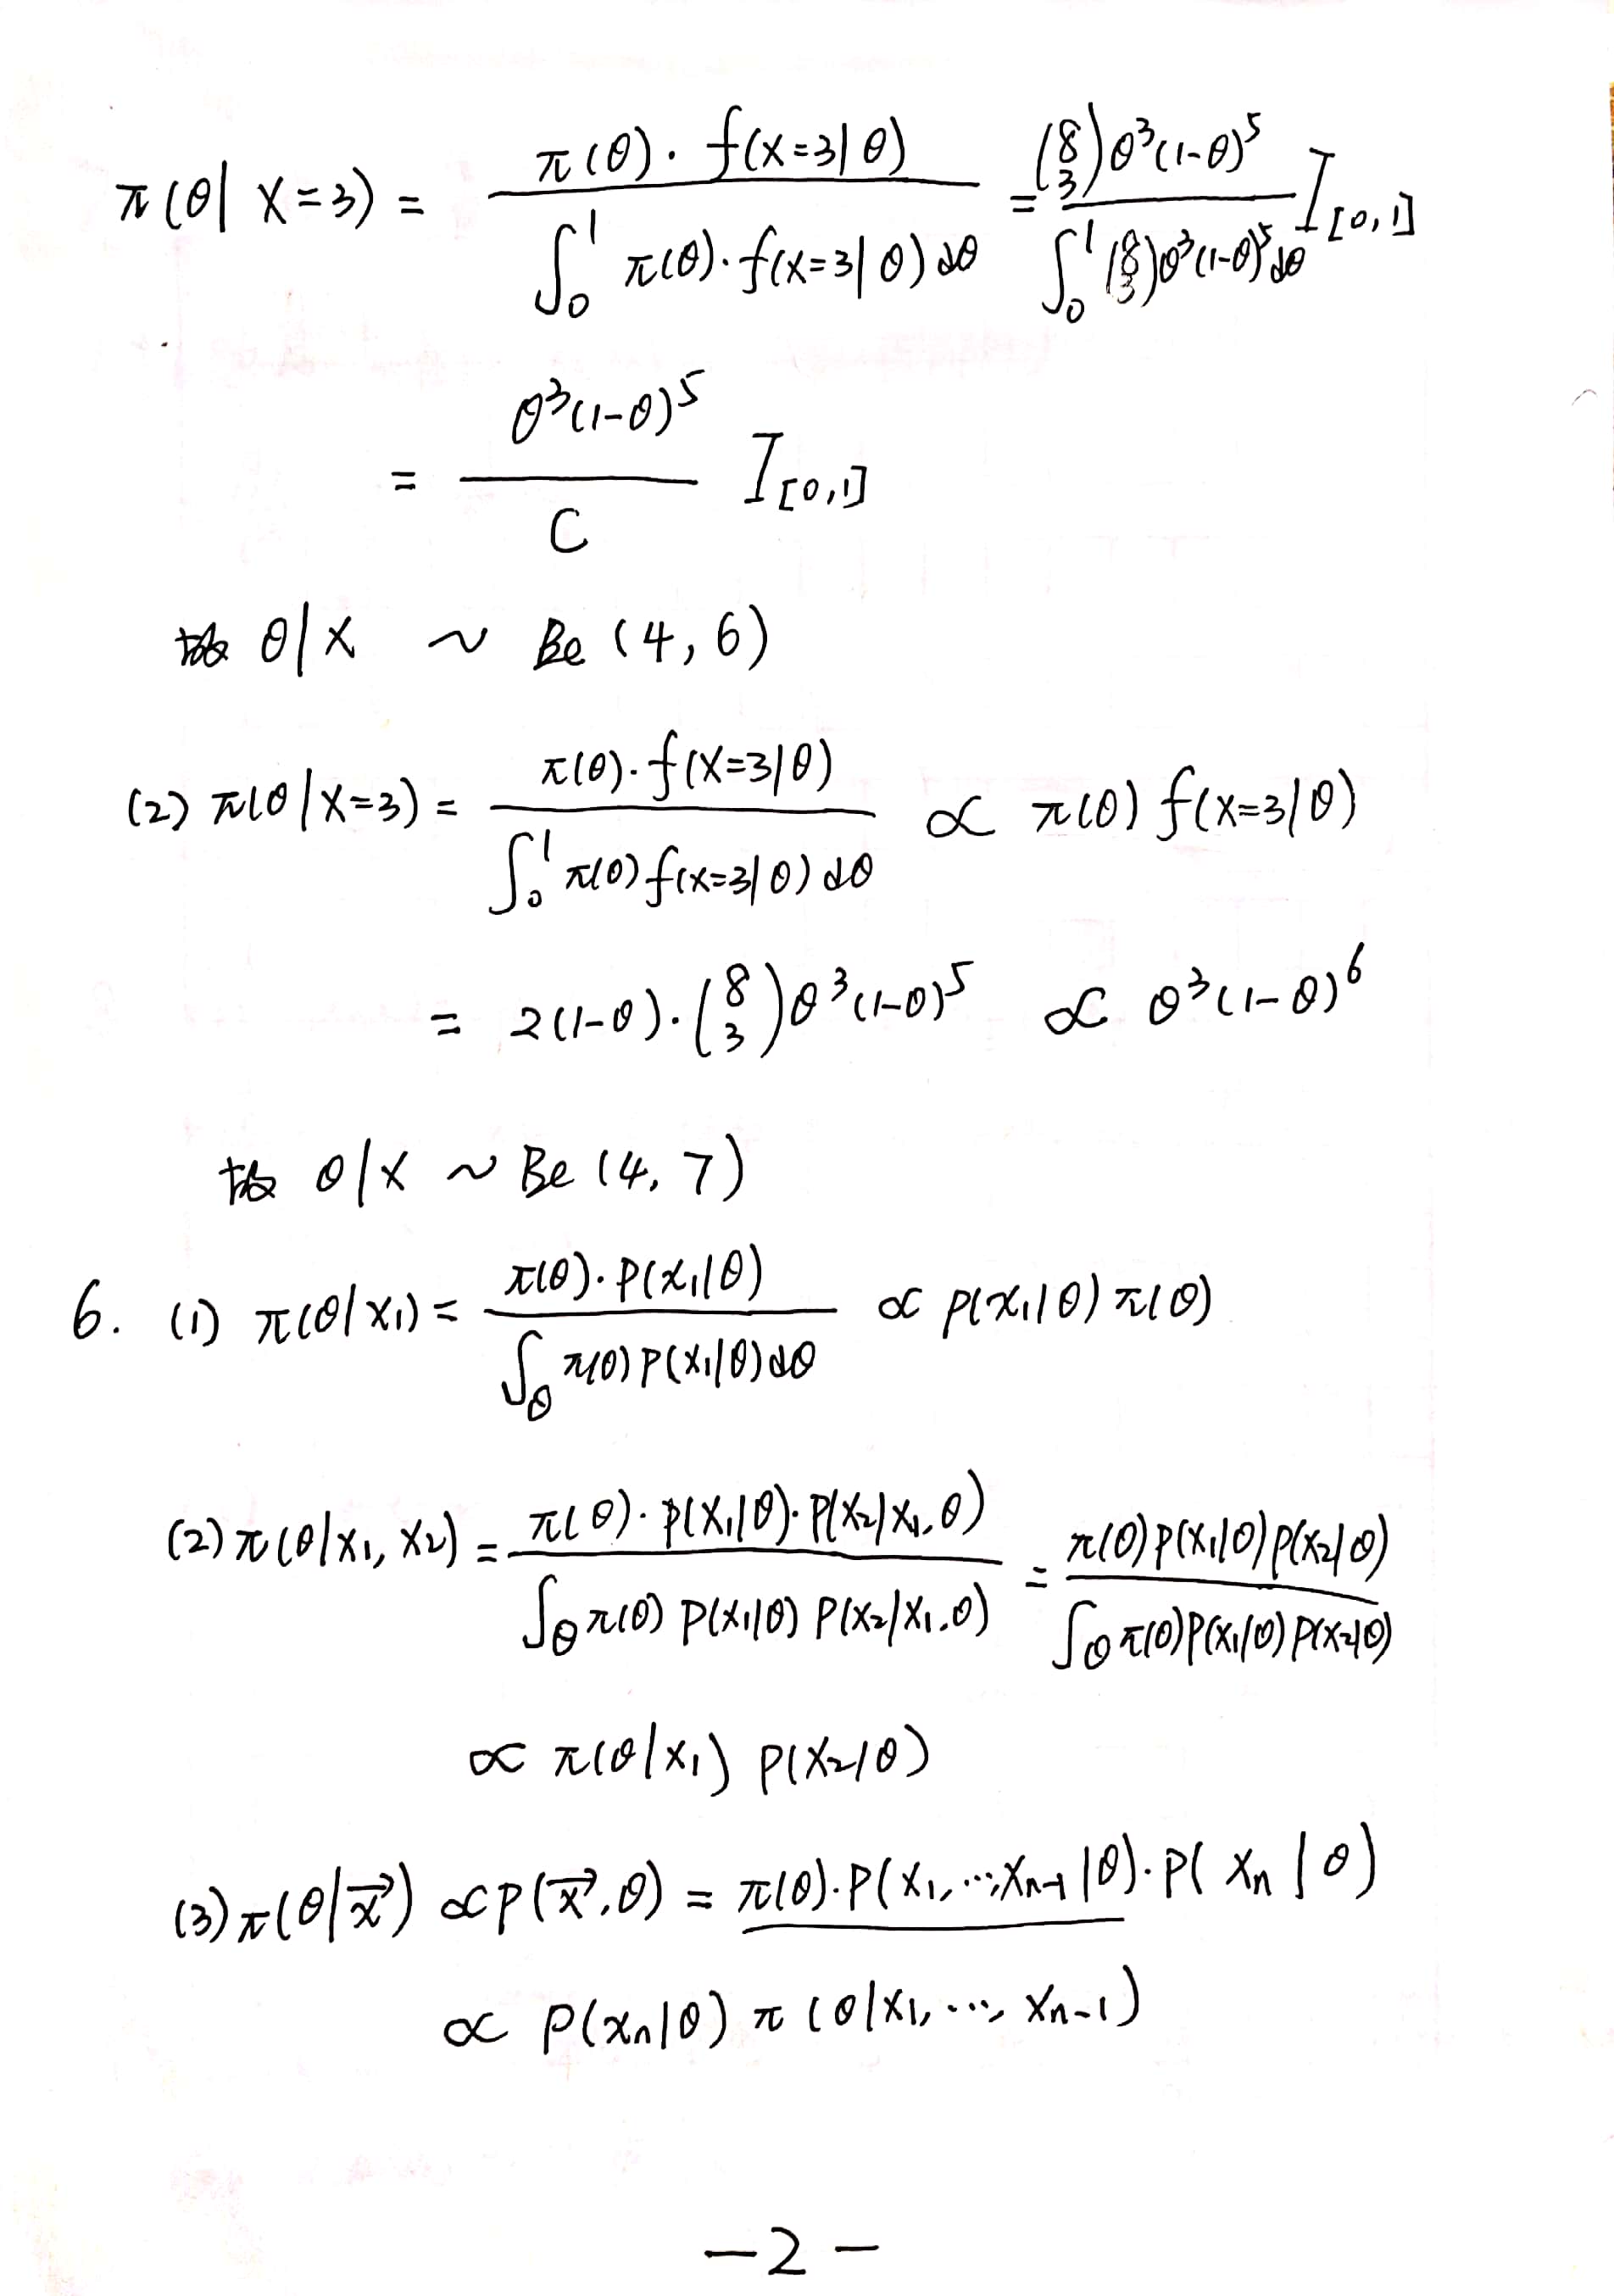 π(θ| X=3) = \frac{π(θ)·f(x=3|θ)}{∫_0^1 π(θ)·f(x=3|θ)dθ} = \frac{\binom{8}{3}θ^3(1-θ)^5}{∫_0^1 \binom{8}{3}θ^3(1-θ)^5dθ} I_{[0,1]}
= \frac{θ^3(1-θ)^5}{C} I_{[0,1]}
故 θ|X ~ Be (4, 6)
(2) π(θ|X=3) = \frac{π(θ)·f(X=3|θ)}{∫_0^1 π(θ)f(x=3|θ)dθ} ∝ π(θ) f(x=3|θ)
= 2(1-θ)·\binom{8}{3}θ^3(1-θ)^5 ∝ θ^3(1-θ)^6
故 θ|X ~ Be (4, 7)
6. (1) π(θ|x_1) = \frac{π(θ)·P(x_1|θ)}{∫_θ π(θ)P(x_1|θ)dθ} ∝ p(x_1|θ)π(θ)
(2) π(θ|x_1, x_2) = \frac{π(θ)·p(x_1|θ)·P(x_2|x_1,θ)}{∫_θ π(θ) P(x_1|θ) P(x_2|x_1,θ)} = \frac{π(θ)p(x_1|θ)p(x_2|θ)}{∫_θ π(θ)P(x_1|θ)P(x_2|θ)}
∝ π(θ|x_1) p(x_2|θ)
(3) π(θ|\vec{x}) ∝ p(\vec{x},θ) = π(θ)·P(x_1,…,x_{n-1}|θ)·P(x_n|θ)
∝ P(x_n|θ) π(θ|x_1,…, x_{n-1})
-2-